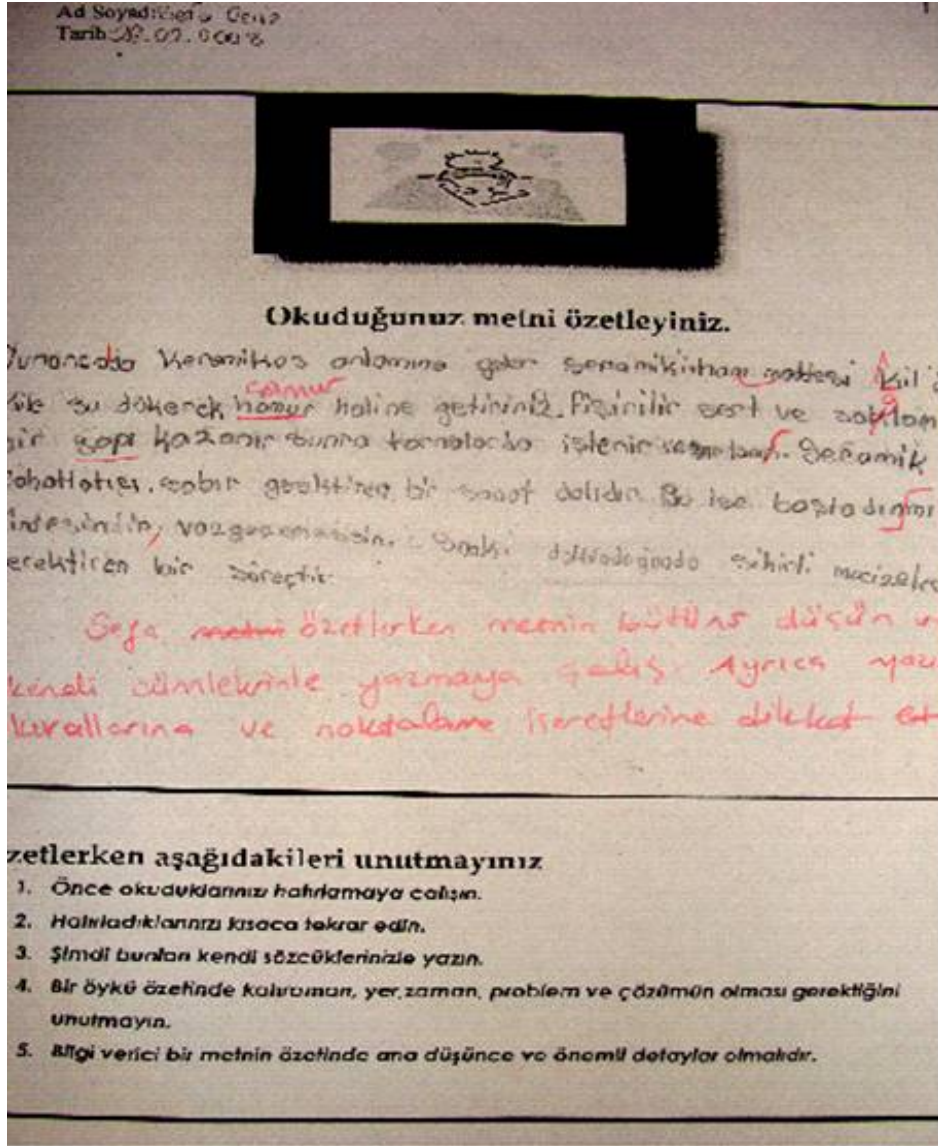 Ad Soyad: Sefa
Tarih: .02.2008
1
Okuduğunuz metni özetleyiniz.
Yunancada Keramikos anlamına gelir seramikinham maddesi kil
çamur
su dökerek hamur haline getiriniz. Pişirilir sert ve sağlam
bir yapı kazanır sunra tornalarda işlenir Seramik
rahatlatıcı, sabır gerektiren bir sanat dalıdır. Bu işe başladığını
vazgeçemezsin. Sanki sihirli
gerektiren bir süreçtir.
Sefa metni özetlerken metnin bütünü düşün
kendi cümlelerinle yazmaya çalış. Ayrıca
kurallarına ve noktalama işaretlerine dikkat et
zetlerken aşağıdakileri unutmayınız
1. Önce okuduklarınızı hatırlamaya çalışın.
2. Hatırladıklarınızı kısaca tekrar edin.
3. Şimdi bunları kendi sözcüklerinizle yazın.
4. Bir öykü özetinde kahraman, yer, zaman, problem ve çözümün olması gerektiğini
unutmayın.
5. Bilgi verici bir metnin özetinde ana düşünce ve önemli detaylar olmalıdır.